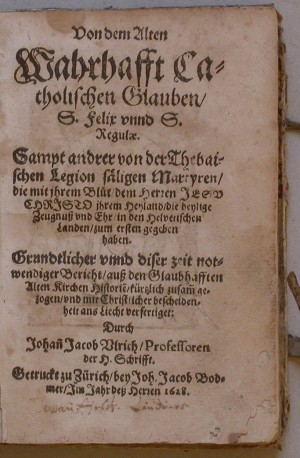 Von dem Alten
Wahrhafft Ca-
tholischen Glauben/
S. Felix vnnd S.
Regulæ.
Sampt andrer von der Thebai-
schen Legion säligen Martyren/
die mit jhrem Blůt dem Herren JESV
CHRISTO jhrem Heyland/die heylige
Zeugnuß vnd Ehr in den Helvetischen
Landen/zum ersten gegeben
haben.
Grundtlicher vnnd diser zeit not-
wendiger Bericht/auß den Glaubhafften
Alten Kirchen Historiē/kürtzlich zusam̄ ge-
zogen/vnd mit Christlicher bescheiden-
heit ans Liecht verfertiget:
Durch
Johañ Jacob Vlrich/Professoren
der H. Schrifft.
Getruckt zu Zürich/bey Joh. Jacob Bod-
mer/Im Jahr deß Herren 1628.